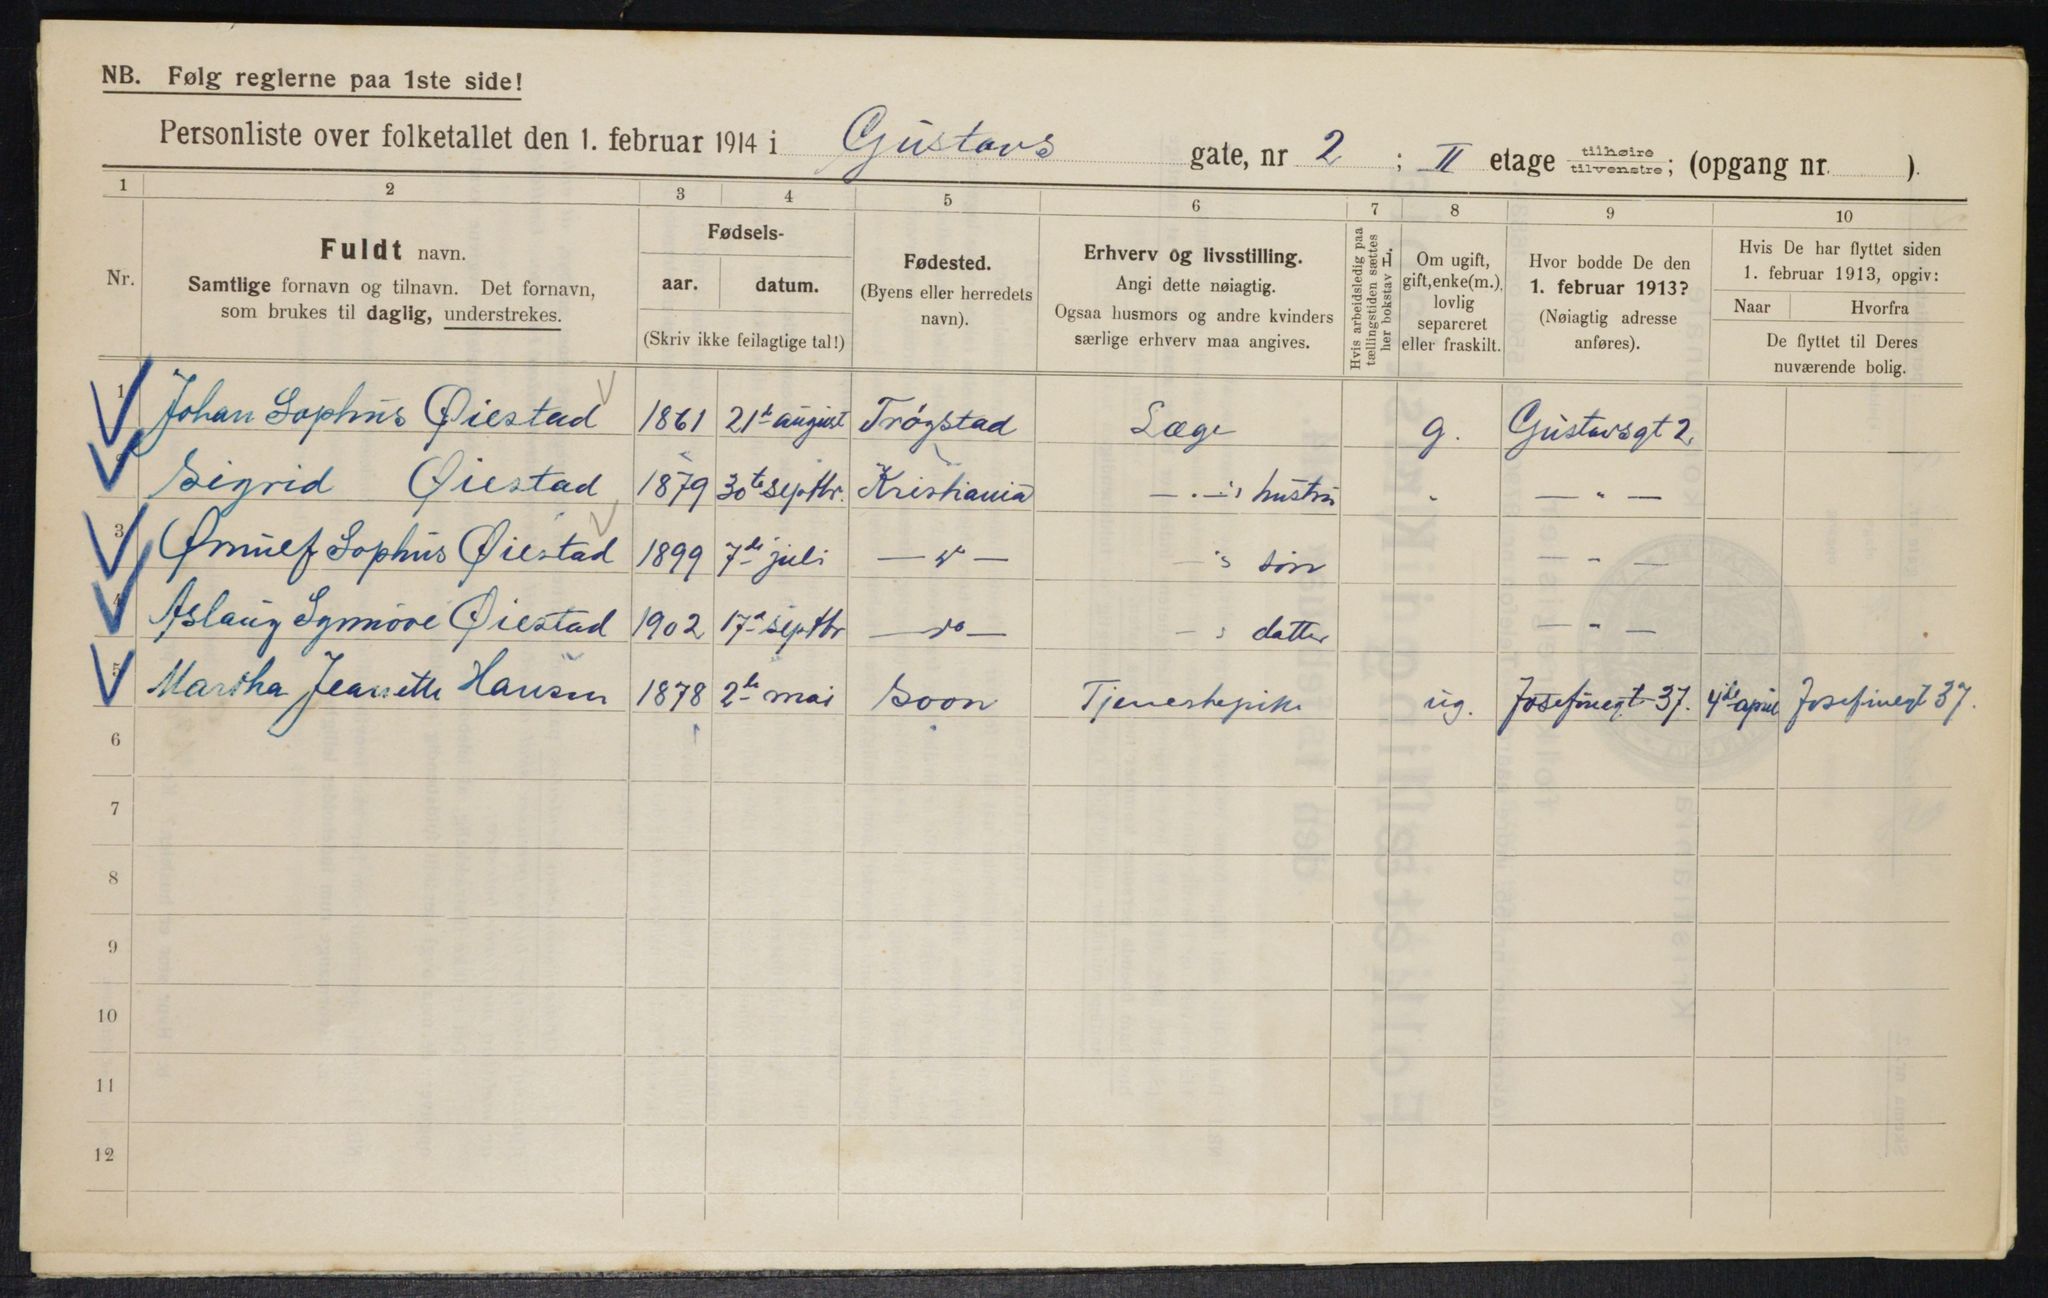 NB. Følg reglerne paa 1ste side!
Personliste over folketallet den 1. februar 1914 i Gustavs gate, nr 2 ; II etage tilhøire tilvenstre; (opgang nr. ).
1 2 3 4 5 6 7 8 9 10
Nr.
Fuldt navn.
Samtlige fornavn og tilnavn. Det fornavn,
som brukes til daglig, understrekes.
Fødsels-
aar. datum.
(Skriv ikke feilagtige tal!)
Fødested.
(Byens eller herredets
navn).
Erhverv og livsstilling.
Angi dette nøiagtig.
Ogsaa husmors og andre kvinders
særlige erhverv maa angives.
Hvis arbeidsledig paa
tællingstiden sættes
her bokstav L.
Om ugift,
gift, enke(m.),
lovlig
separeret
eller fraskilt.
Hvor bodde De den
1. februar 1913?
(Nøiagtig adresse
anføres).
Hvis De har flyttet siden
1. februar 1913, opgiv:
Naar Hvorfra
De flyttet til Deres
nuværende bolig.
1 Johan Sophus Øiestad 1861 21de august Trøgstad Læge g. Gustavsgt 2.
2 Sigrid Øiestad 1879 30te septbr. Kristiania — " — 's hustru " — " —
3 Ørnulf Sophus Øiestad 1899 7de juli — " — — 's søn — " —
4 Aslaug Synnøve Øiestad 1902 17de septbr — " — — 's datter — " —
5 Martha Jeanette Hansen 1878 2de mai Soon Tjenestepike ug. Josefinegt 37. 4de april Josefinegt 37.
6
7
8
9
10
11
12